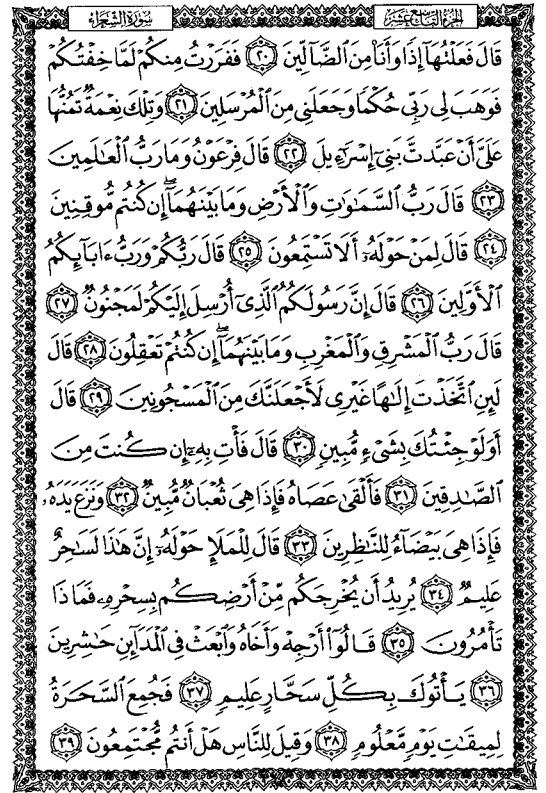 سُورَةُ الشُّعَرَاءِ
الجزء التاسع عشر
قَالَ فَعَلْتُهَآ إِذًا وَأَنَا۠ مِنَ ٱلضَّآلِّينَ ﴿٢٠﴾ فَفَرَرْتُ مِنكُمْ لَمَّا خِفْتُكُمْ
فَوَهَبَ لِى رَبِّى حُكْمًا وَجَعَلَنِى مِنَ ٱلْمُرْسَلِينَ ﴿٢١﴾ وَتِلْكَ نِعْمَةٌ تَمُنُّهَا
عَلَىَّ أَنْ عَبَّدتَّ بَنِىٓ إِسْرَٰٓءِيلَ ﴿٢٢﴾ قَالَ فِرْعَوْنُ وَمَا رَبُّ ٱلْعَٰلَمِينَ
﴿٢٣﴾ قَالَ رَبُّ ٱلسَّمَٰوَٰتِ وَٱلْأَرْضِ وَمَا بَيْنَهُمَآ ۖ إِن كُنتُم مُّوقِنِينَ
﴿٢٤﴾ قَالَ لِمَنْ حَوْلَهُۥٓ أَلَا تَسْتَمِعُونَ ﴿٢٥﴾ قَالَ رَبُّكُمْ وَرَبُّ ءَابَآئِكُمُ
ٱلْأَوَّلِينَ ﴿٢٦﴾ قَالَ إِنَّ رَسُولَكُمُ ٱلَّذِىٓ أُرْسِلَ إِلَيْكُمْ لَمَجْنُونٌ ﴿٢٧﴾
قَالَ رَبُّ ٱلْمَشْرِقِ وَٱلْمَغْرِبِ وَمَا بَيْنَهُمَآ ۖ إِن كُنتُمْ تَعْقِلُونَ ﴿٢٨﴾ قَالَ
لَئِنِ ٱتَّخَذْتَ إِلَٰهًا غَيْرِى لَأَجْعَلَنَّكَ مِنَ ٱلْمَسْجُونِينَ ﴿٢٩﴾ قَالَ
أَوَلَوْ جِئْتُكَ بِشَىْءٍ مُّبِينٍ ﴿٣٠﴾ قَالَ فَأْتِ بِهِۦٓ إِن كُنتَ مِنَ
ٱلصَّٰدِقِينَ ﴿٣١﴾ فَأَلْقَىٰ عَصَاهُ فَإِذَا هِىَ ثُعْبَانٌ مُّبِينٌ ﴿٣٢﴾ وَنَزَعَ يَدَهُۥ
فَإِذَا هِىَ بَيْضَآءُ لِلنَّٰظِرِينَ ﴿٣٣﴾ قَالَ لِلْمَلَإِ حَوْلَهُۥٓ إِنَّ هَٰذَا لَسَٰحِرٌ
عَلِيمٌ ﴿٣٤﴾ يُرِيدُ أَن يُخْرِجَكُم مِّنْ أَرْضِكُم بِسِحْرِهِۦ فَمَاذَا
تَأْمُرُونَ ﴿٣٥﴾ قَالُوٓا۟ أَرْجِهْ وَأَخَاهُ وَٱبْعَثْ فِى ٱلْمَدَآئِنِ حَٰشِرِينَ
﴿٣٦﴾ يَأْتُوكَ بِكُلِّ سَحَّارٍ عَلِيمٍ ﴿٣٧﴾ فَجُمِعَ ٱلسَّحَرَةُ
لِمِيقَٰتِ يَوْمٍ مَّعْلُومٍ ﴿٣٨﴾ وَقِيلَ لِلنَّاسِ هَلْ أَنتُم مُّجْتَمِعُونَ ﴿٣٩﴾